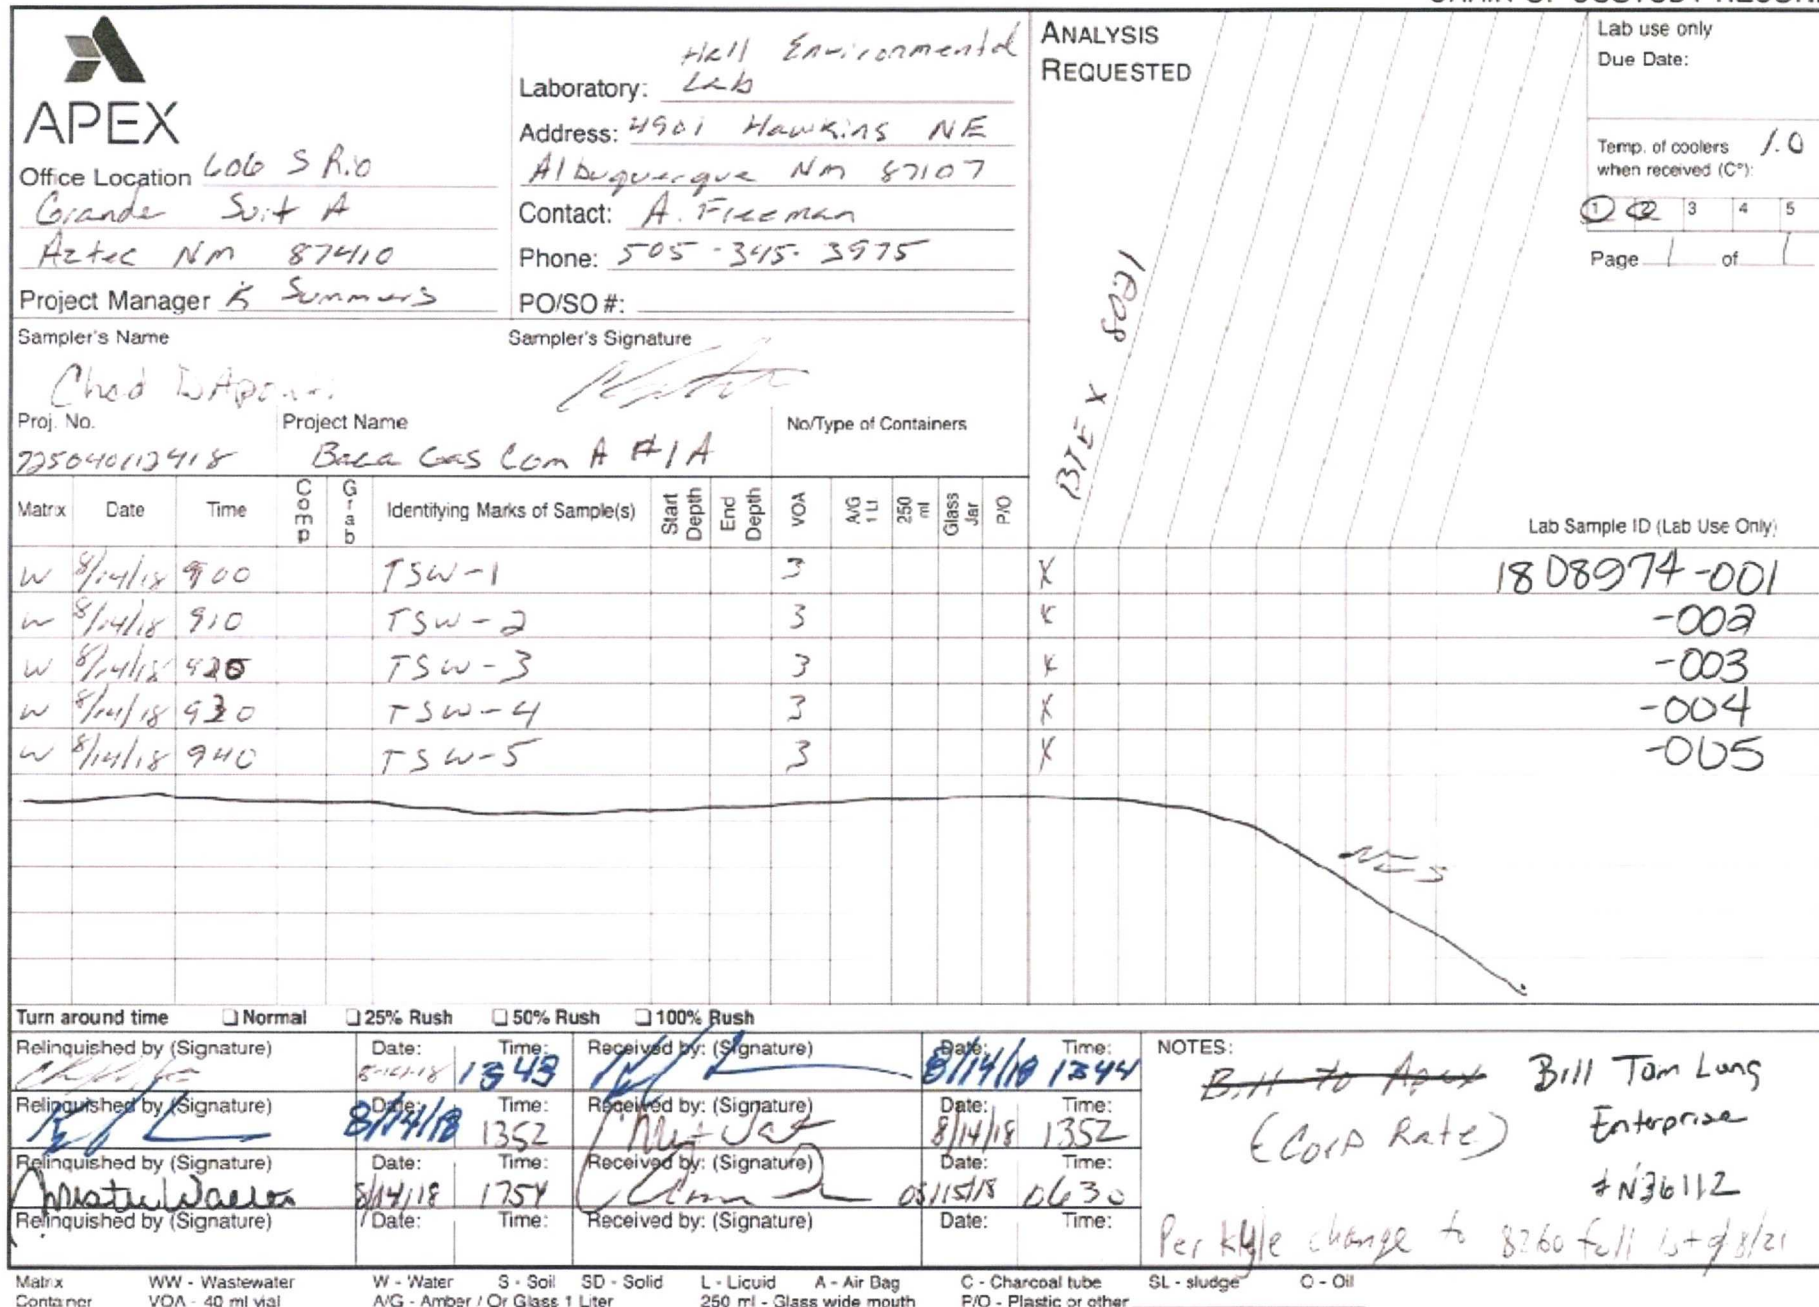 APEX
Office Location 606 S Rio
Grande Suit A
Aztec NM 87410
Project Manager K Summers
Hall Environmental
Laboratory: Lab
Address: 4901 Hawkins NE
Albuquerque NM 87107
Contact: A. Freeman
Phone: 505-345-3975
PO/SO #:
ANALYSIS
REQUESTED
BTEX 8021
Lab use only
Due Date:
Temp. of coolers 1.0
when received (C°):
1 2 3 4 5
Page 1 of 1
Sampler's Name
Chad
Sampler's Signature
Proj. No.
725040112418
Project Name
Baca Gas Com A #1A
No/Type of Containers
Matrix Date Time Comp Grab Identifying Marks of Sample(s) Start Depth End Depth VOA A/G 1 Lt 250 ml Glass Jar P/O Lab Sample ID (Lab Use Only)
W 8/14/18 900 TSW-1 3 X 1808974-001
W 8/14/18 910 TSW-2 3 X -002
W 8/14/18 920 TSW-3 3 X -003
W 8/14/18 930 TSW-4 3 X -004
W 8/14/18 940 TSW-5 3 X -005
NES
Turn around time Normal 25% Rush 50% Rush 100% Rush
Relinquished by (Signature) Date: 8-14-18 Time: 1343 Received by: (Signature) Date: 8/14/18 Time: 1344
Relinquished by (Signature) Date: 8/14/18 Time: 1352 Received by: (Signature) Date: 8/14/18 Time: 1352
Relinquished by (Signature) Date: 8/14/18 Time: 1754 Received by: (Signature) Date: 08/15/18 Time: 0630
Relinquished by (Signature) Date: Time: Received by: (Signature) Date: Time:
NOTES:
Bill to Apex Bill Tom Long
(Corp Rate) Enterprise
# N36112
Per Kyle change to 8260 full list 8/21
Matrix WW - Wastewater W - Water S - Soil SD - Solid L - Liquid A - Air Bag C - Charcoal tube SL - sludge O - Oil
Container VOA - 40 ml vial A/G - Amber / Or Glass 1 Liter 250 ml - Glass wide mouth P/O - Plastic or other